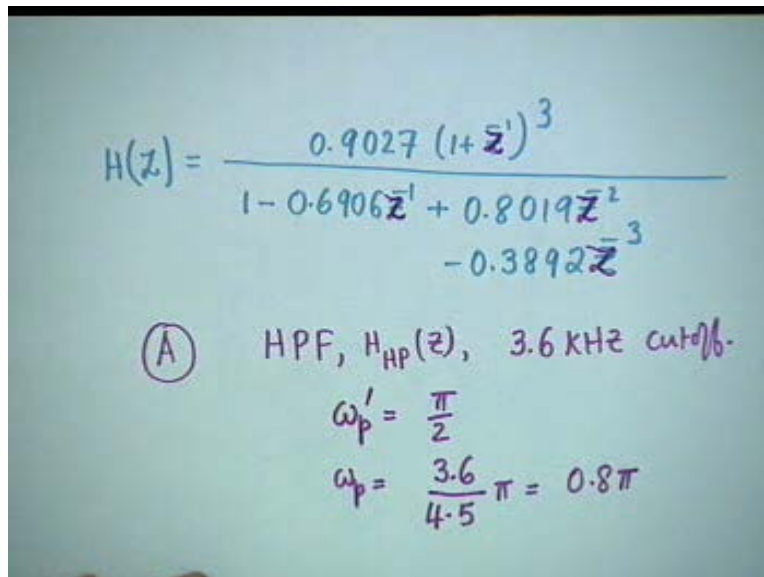 H(z) = 0.9027 (1+ z⁻¹)³
1 - 0.6906z⁻¹ + 0.8019z⁻²
- 0.3892z⁻³
(A) HPF, H_HP(z), 3.6 KHz cutoff.
ω_p' = π/2
ω_p = 3.6/4.5 π = 0.8π